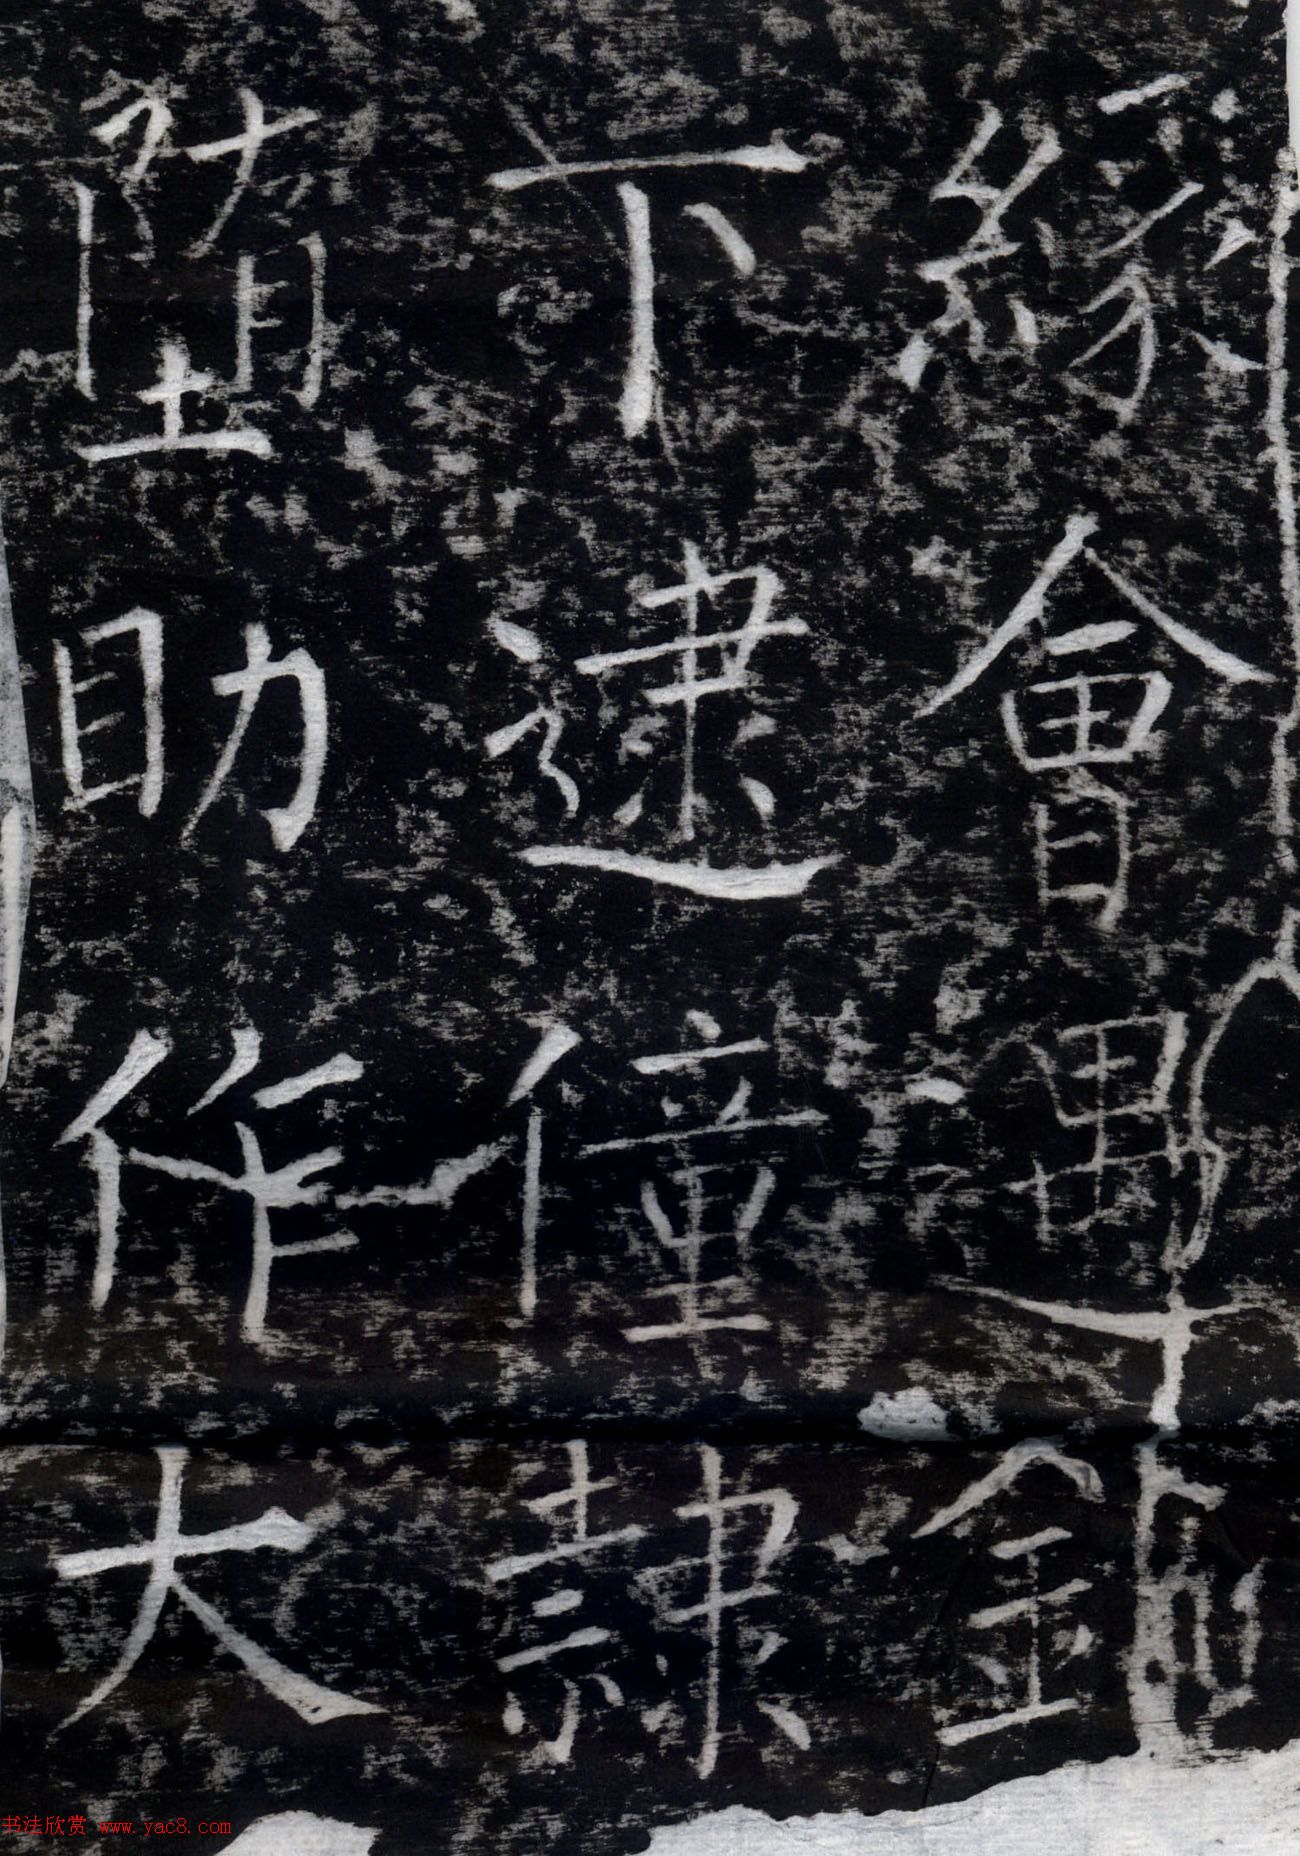 緣會遇
下逮僮隸
隋助作大
书法欣赏 www.yac8.com